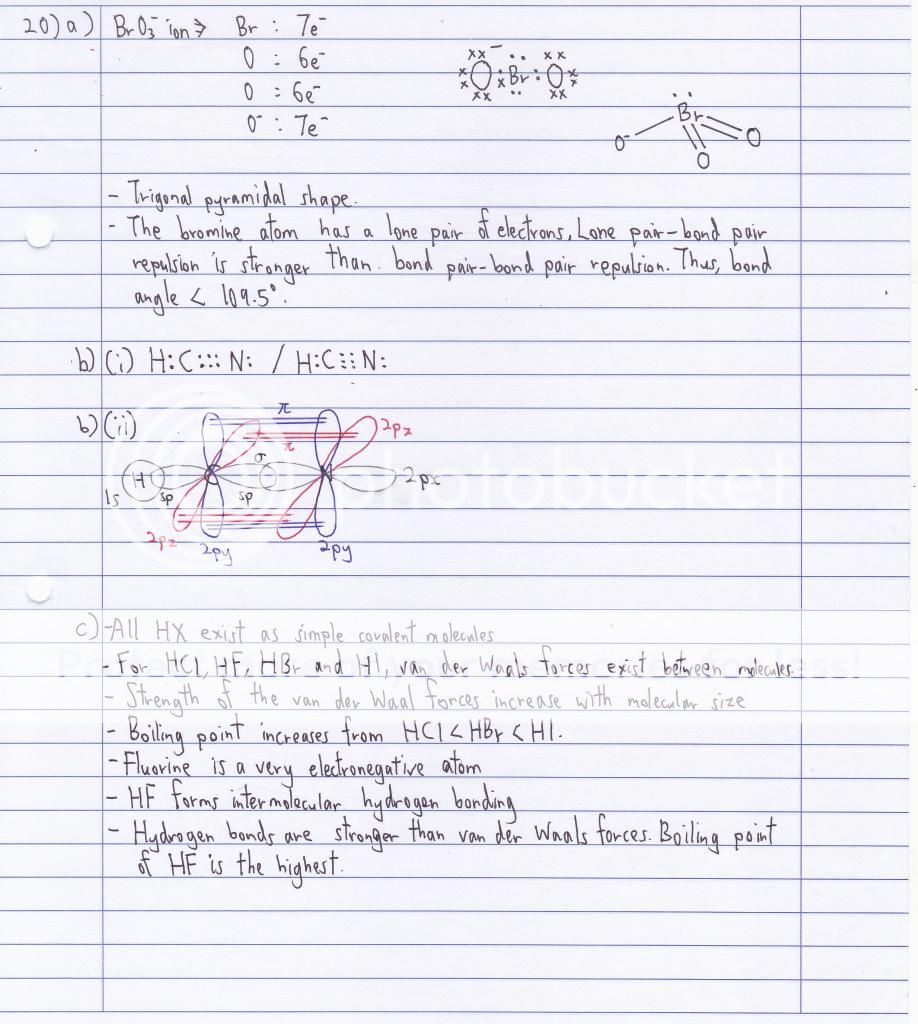 20)a) BrO3⁻ ion → Br : 7e⁻
O : 6e⁻
O : 6e⁻
O⁻ : 7e⁻
O Br O
Br
O⁻ O
O
- Trigonal pyramidal shape.
- The bromine atom has a lone pair of electrons, Lone pair-bond pair
repulsion is stronger than bond pair-bond pair repulsion. Thus, bond
angle < 109.5°.
b)(i) H:C:::N: / H:C⋮⋮N:
b)(ii)
π
π 2pz
σ
H C N 2px
1s sp sp
2pz 2py 2py
photobucket
c) -All HX exist as simple covalent molecules
- For HCl, HF, HBr and HI, van der Waals forces exist between molecules.
- Strength of the van der Waal forces increase with molecular size
- Boiling point increases from HCl < HBr < HI.
- Fluorine is a very electronegative atom
- HF forms intermolecular hydrogen bonding
- Hydrogen bonds are stronger than van der Waals forces. Boiling point
of HF is the highest.